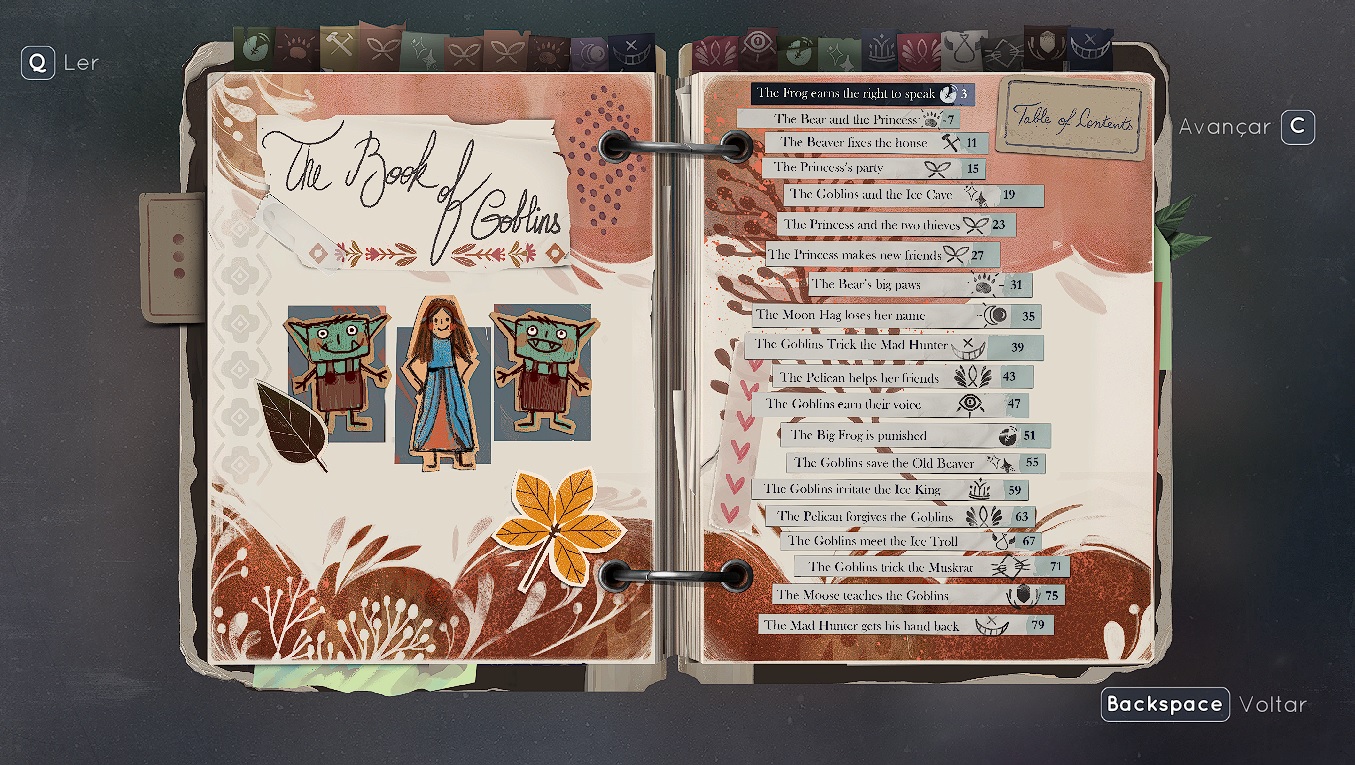 Q Ler
The Book of Goblins
Table of Contents
Avançar C
The Frog earns the right to speak 3
The Bear and the Princess 7
The Beaver fixes the house 11
The Princess's party 15
The Goblins and the Ice Cave 19
The Princess and the two thieves 23
The Princess makes new friends 27
The Bear's big paws 31
The Moon Hag loses her name 35
The Goblins Trick the Mad Hunter 39
The Pelican helps her friends 43
The Goblins earn their voice 47
The Big Frog is punished 51
The Goblins save the Old Beaver 55
The Goblins irritate the Ice King 59
The Pelican forgives the Goblins 63
The Goblins meet the Ice Troll 67
The Goblins trick the Muskrat 71
The Moose teaches the Goblins 75
The Mad Hunter gets his hand back 79
Backspace Voltar